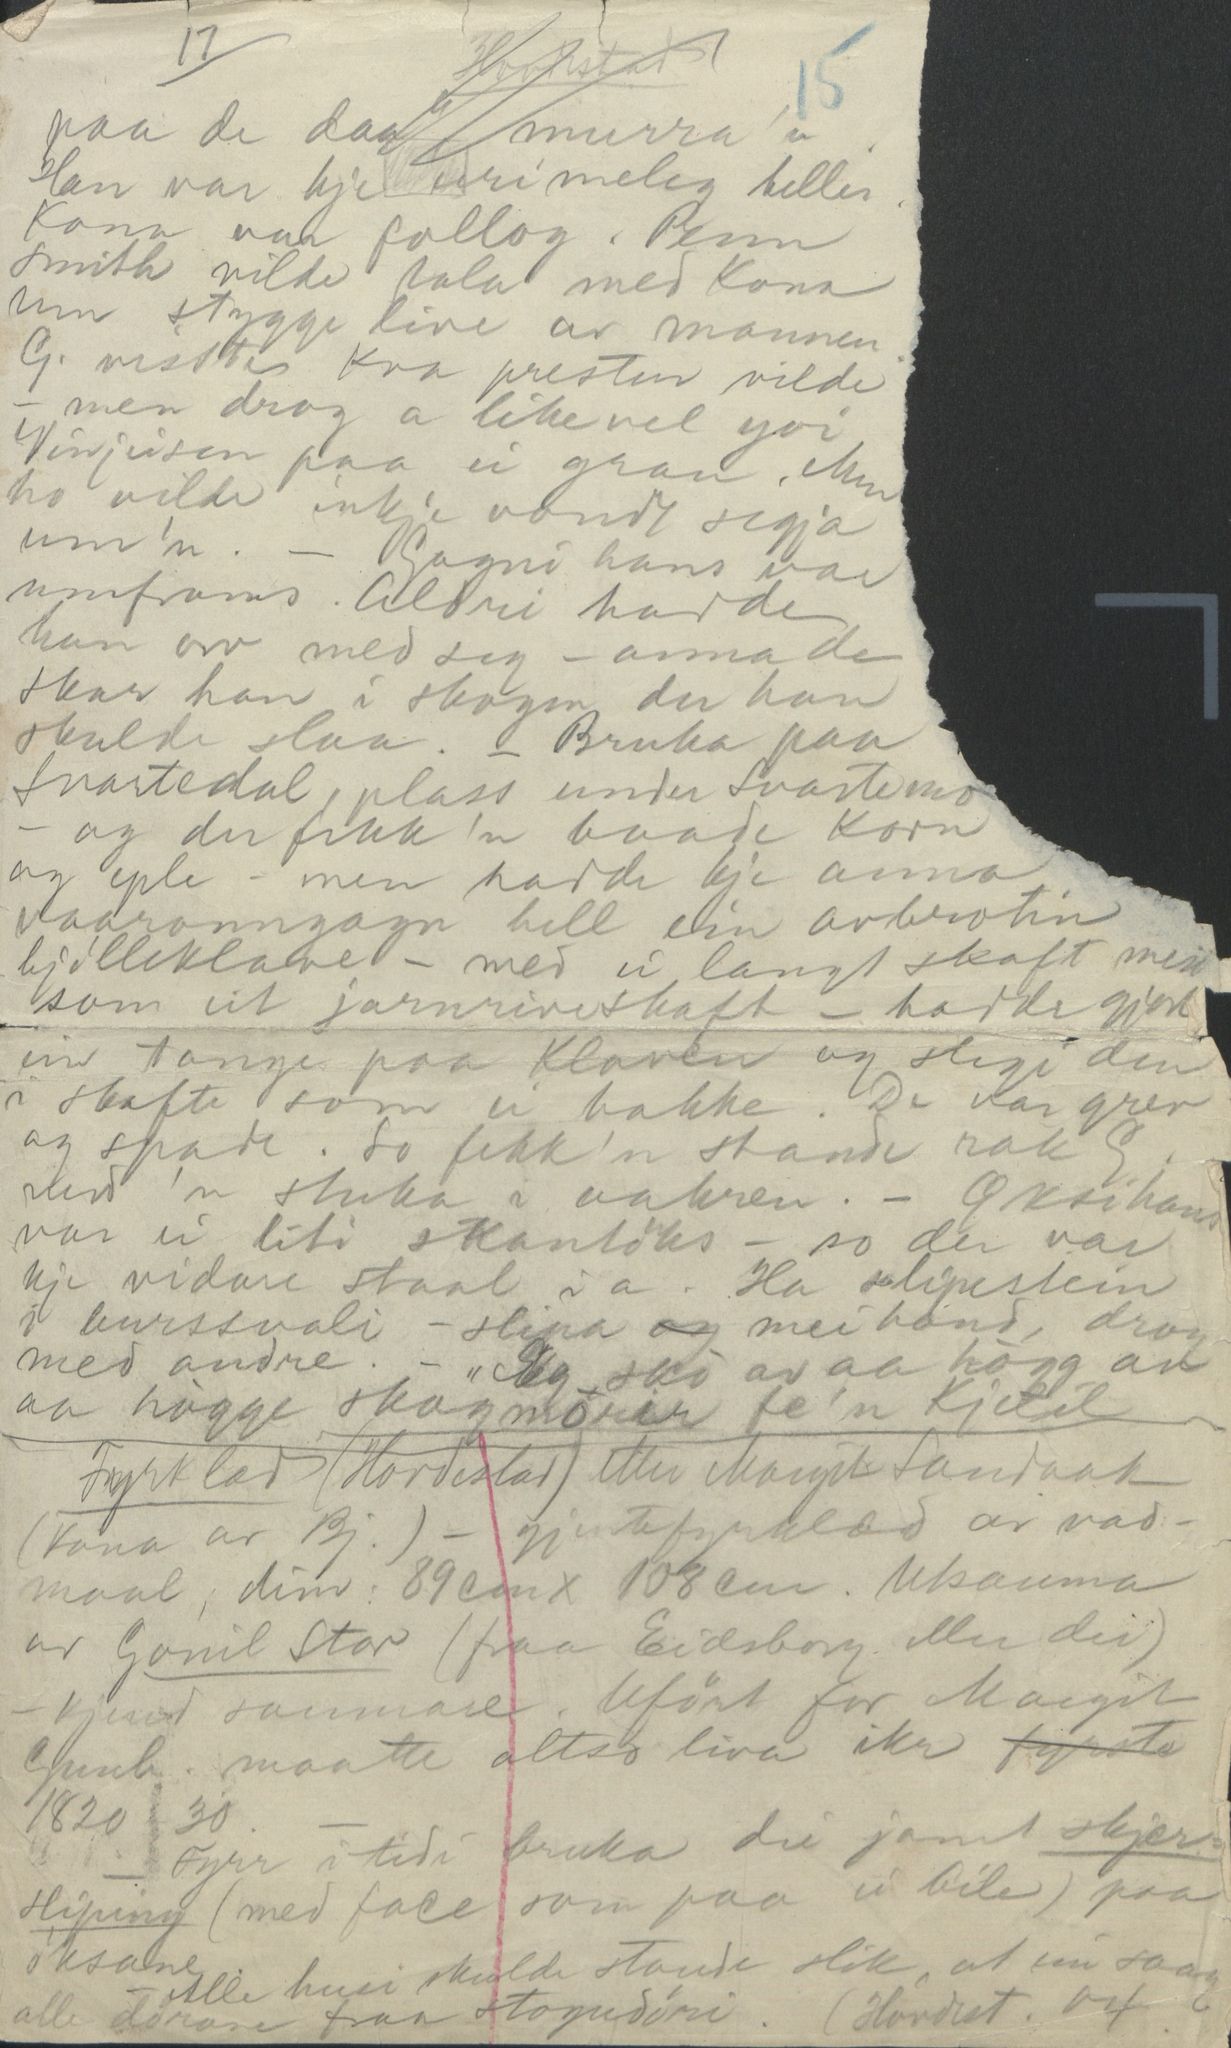 17
Hordestad
15
paa de daa" murra 'n.
Han var kje urimeleg heller.
Kona var follog. Penn
Smith vilde tala med Kona
um stygge live av mannen.
G. visste kva presten vilde
– men drog a likevel yvi
Vinjeisen paa ei gran. Men
ho vilde inkje vondt segja
um'n. – Gogni hans var
umframs. Aldri hadde
han orv med seg – anna de
skar han i skogen der han
skulde slaa. – Bruka paa
Svartedal, plass under Svartemo
– og der fekk 'n baade korn
og eple – men hadde kje anna
vaaronngogn hell ein avbrotin
bjölleklave – med ei langt skaft mest
som eit jarnriveskaft – hadde gjort
ein tange paa klaven og slegi den
i skafte som ei hakke. De var grev
og spade. So fekk'n stande rak G.
med 'n stuka i aakren. – Öksi hans
var ei liti skantöks – so der var
kje vidare staal i a. Ha slipestein
i burssvali – slipa og mei hond, drog
med andre. – "Eg sko av aa högg av
aa högge skogmörir fe'n Kjetil
Fyrklæd (Hordestad) etter Margit Sandaak
(Kona av Bj.) – gjentefyrklæd av vad-
maal, dim: 89 cm x 108 cm. Utsauma
av Gonil Stor (fraa Eidsborg eller dei)
– kjend saumare. Utfört for Margit
Gunh. maatte altso liva ikr fyrste
1820 30. –
– Fyrr i tidi bruka dei jamt skjer-
sliping (med face som paa ei bile) paa
öksane.
– Alle husi skulde stande slik, at ein saag
alle dörane fraa stogudöri. (Hordest.